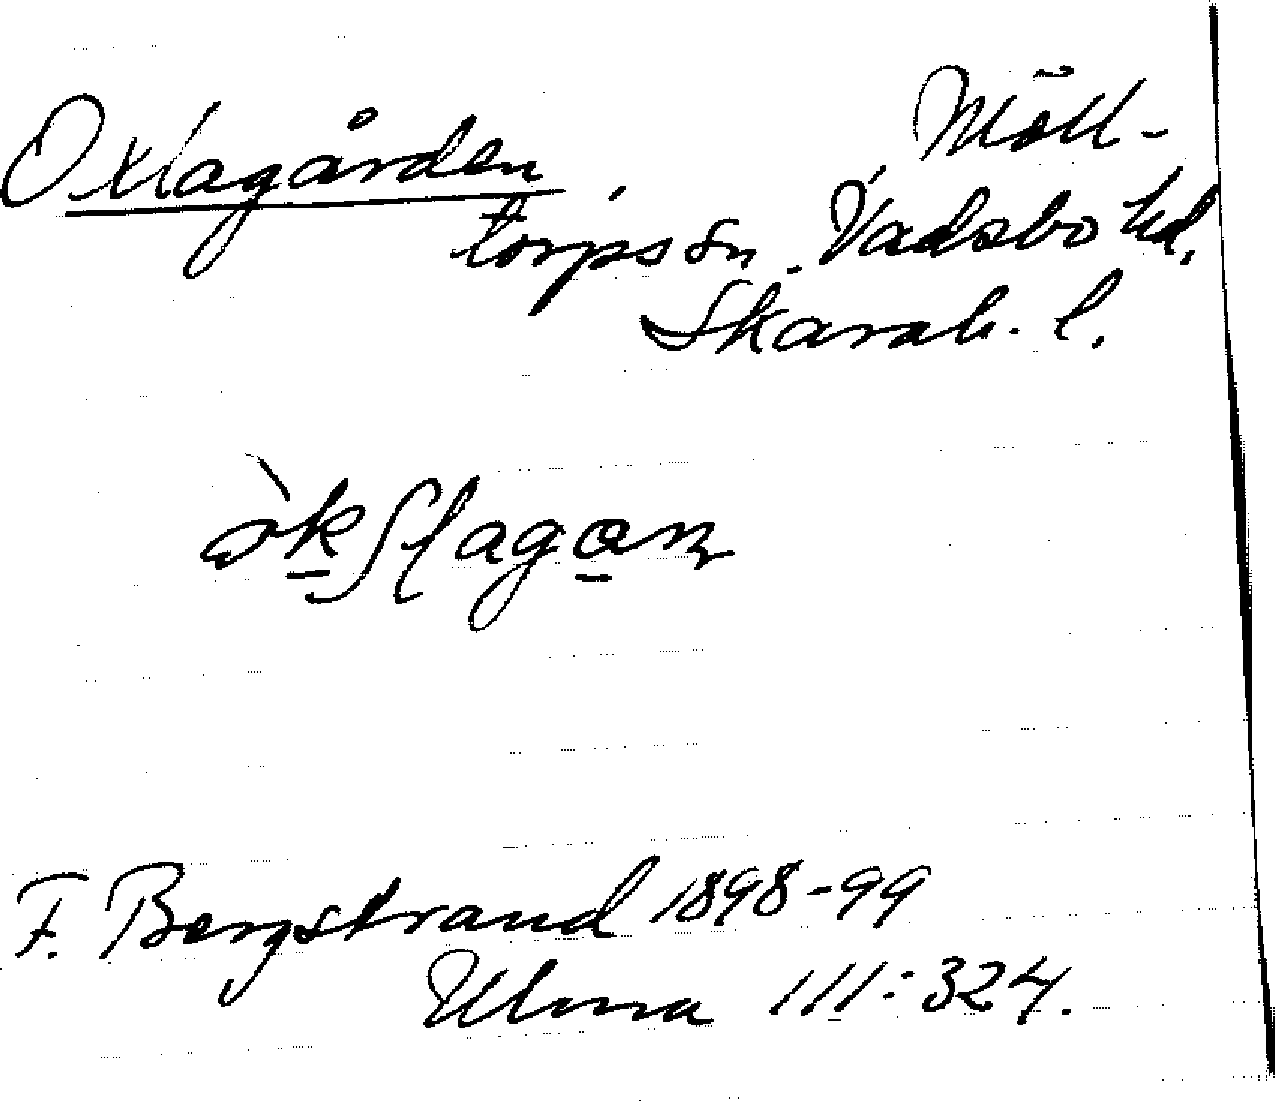 Oxlagården, Möll-
torps sn. Vadsbo hd.
Skarab. l.
F. Bergstrand 1898-99
Ulma 111:324.